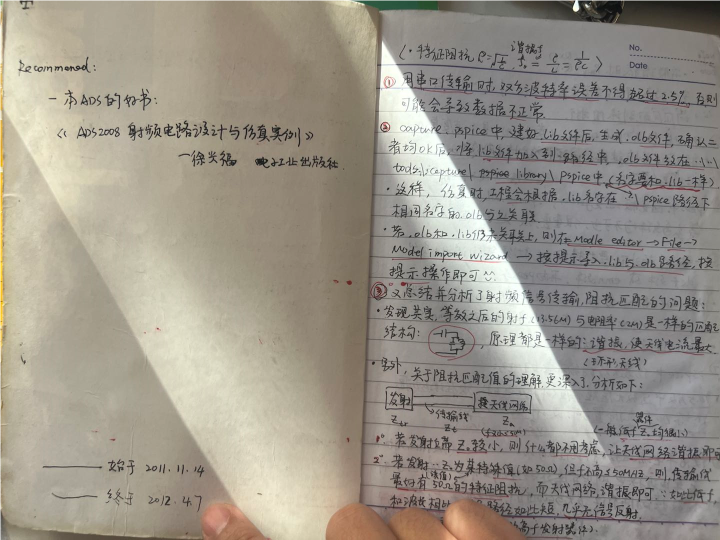 Recommened:
一本ADS的好书:
《ADS2008射频电路设计与仿真实例》
—徐兴福 电子工业出版社
始于 2011.11.14
终于 2012.4.7
No.
Date
谐振时
〈·特征阻抗 ρ=
① 用串口传输时,双方波特率误差不得超过2.5%,否则
可能会导致数据不正常
② capture、pspice中,建好.lib文件后,生成.olb文件,确认二
者均OK后,将.lib文件加入到 路径中,.olb文件放在..\..\
tools\capture\pspice library\pspice中(名字要和.lib一样)
·这样,仿真时,工程会根据.lib名字在 ..\pspice路径下
相同名字的.olb与之关联
·若.olb和.lib仍未关联上,则在Modle editor→File→
Model import wizard →按提示导入.lib与.olb路径,按
提示操作即可
③ 又总结并分析了射频信号传输,阻抗匹配的问题:
·发现其实,等效之后的射子(13.56M)与电阻率(2M)是一样的匹配
结构: ,原理都是一样的:谐振,使天线电流最大
(环形天线)
·另外,关于阻抗匹配值的理解更深入了,分析如下:
发射 接天线网络
传输线
Z₀
1° 若发射端 Z 较小,则什么都不用考虑,让天线网络谐振即可
2° 若发射 Z为某特殊值(如50Ω),但f不高≤50MHZ,则,传输线
最好有50Ω的特征阻抗,而天线网络,谐振即可∵如此低f,
和波长相比 路径如此短,几乎无信号反射.